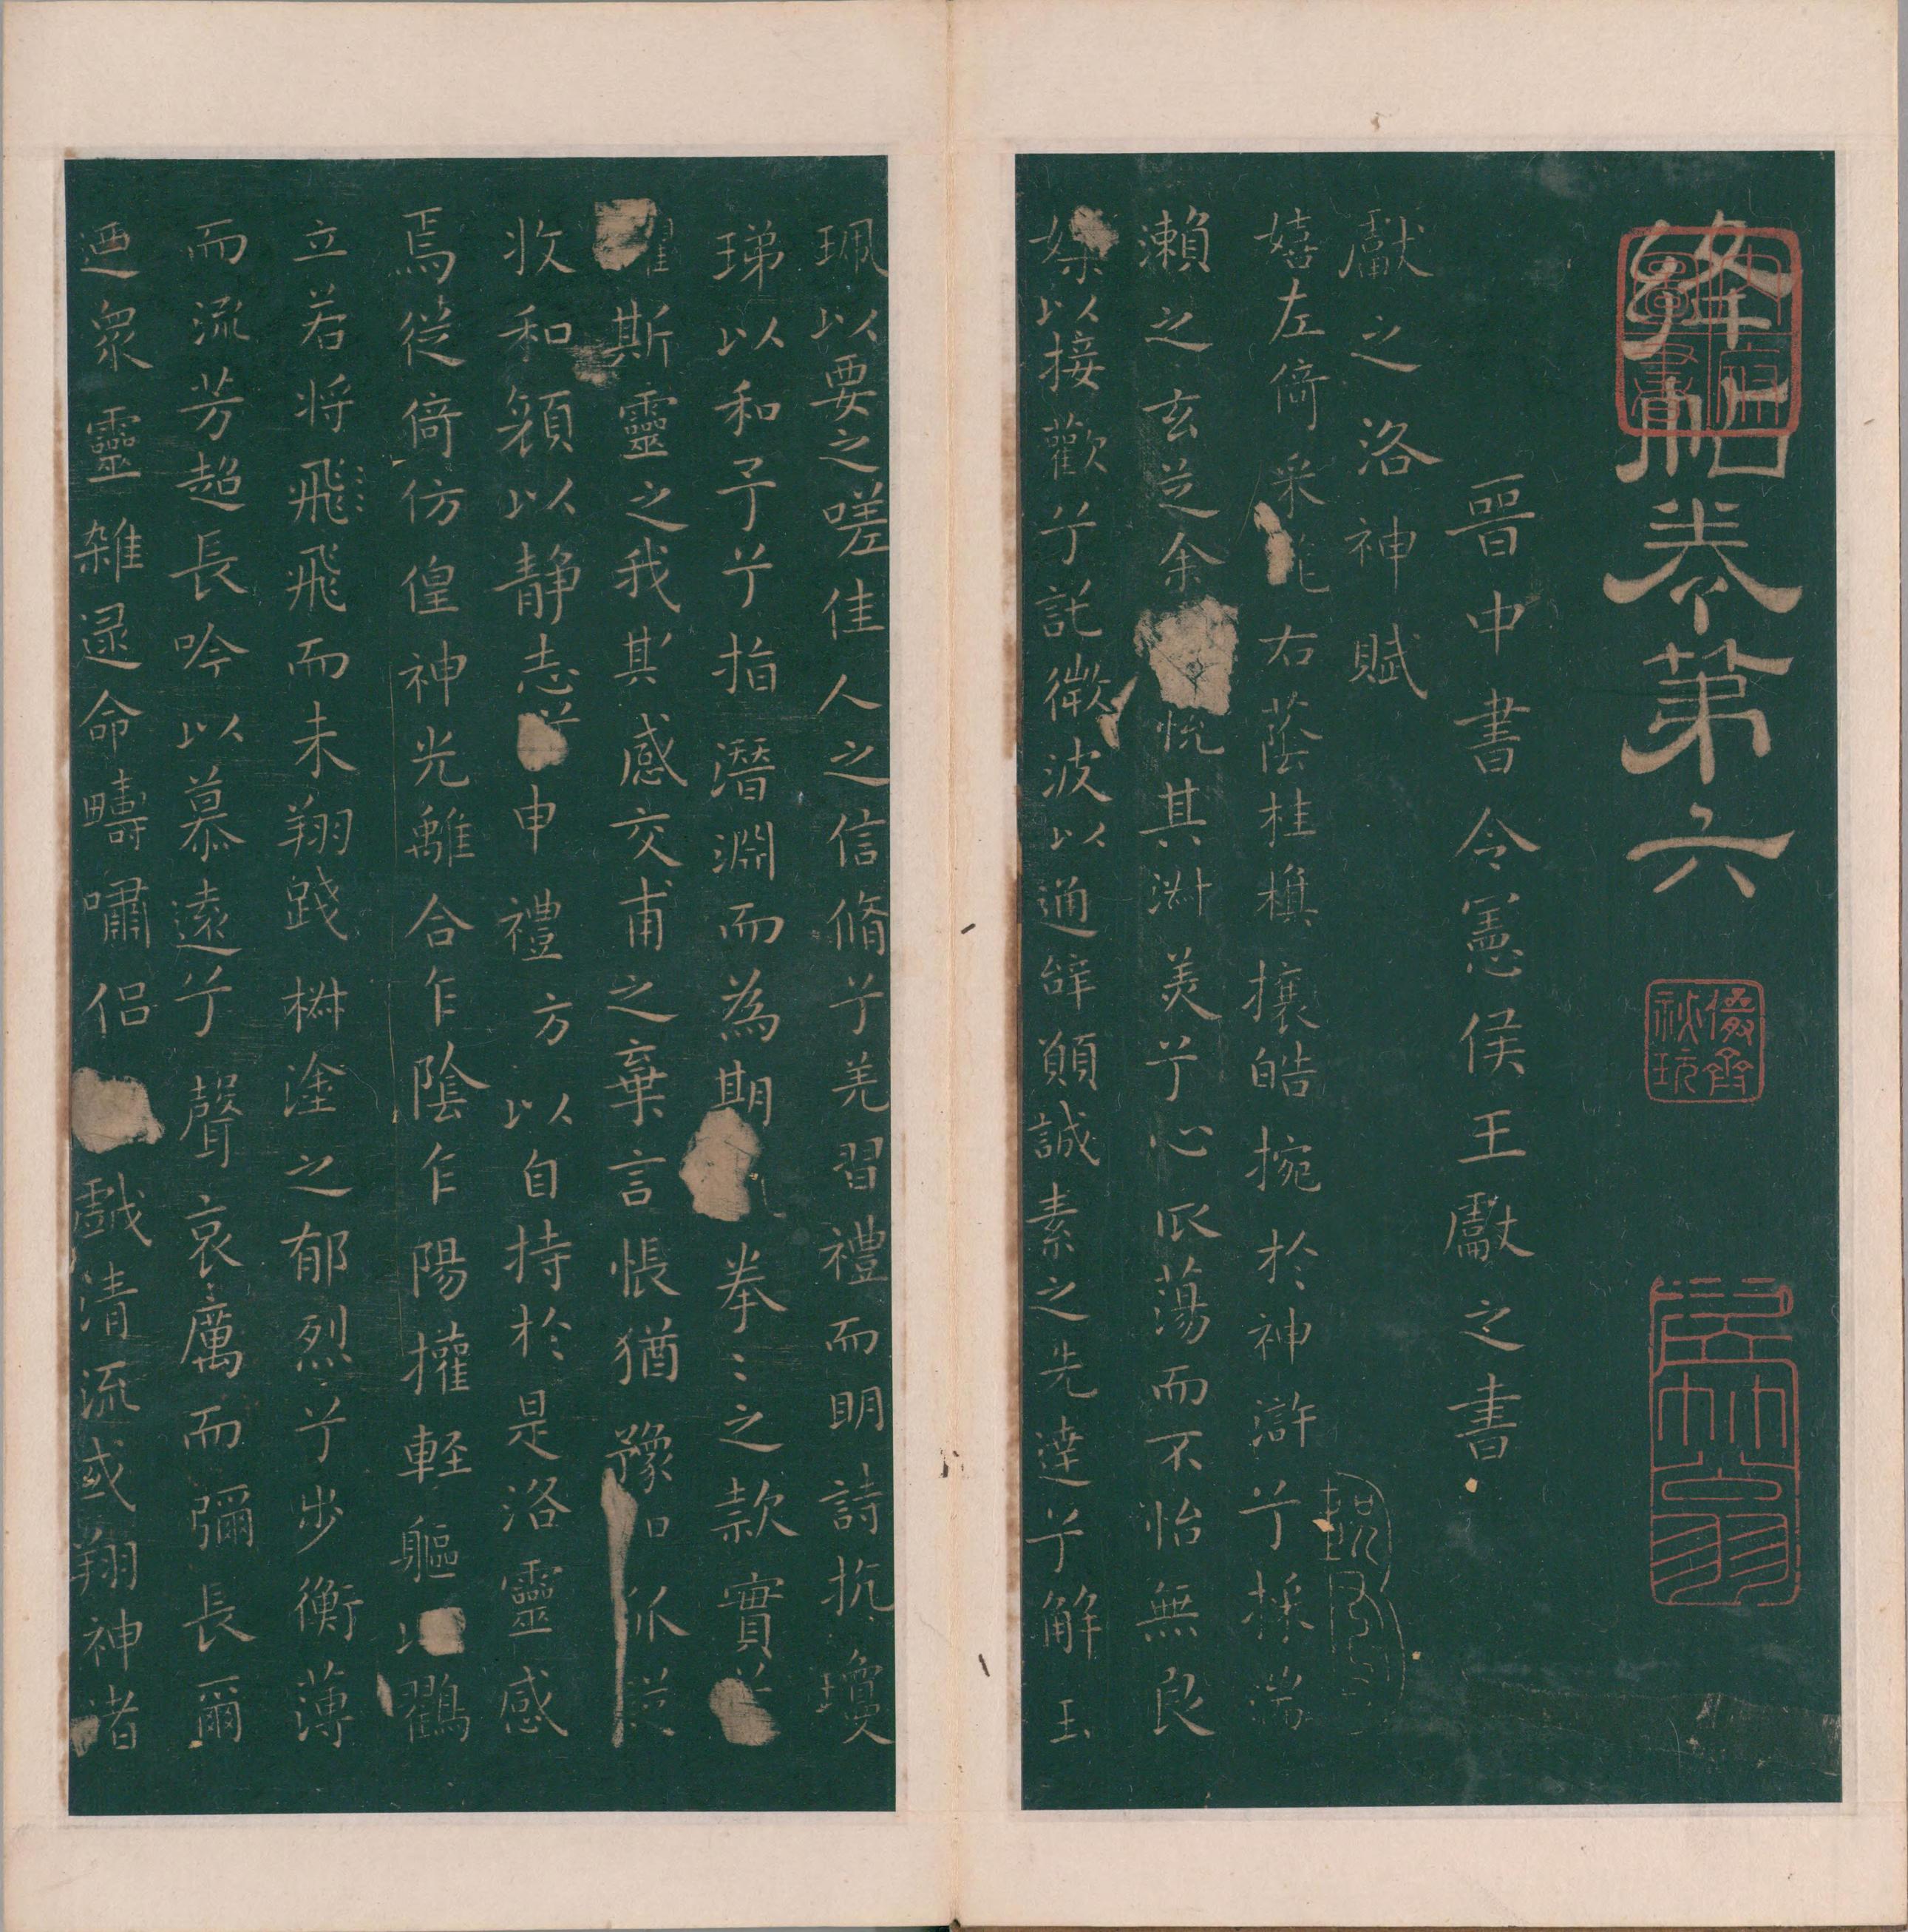 絳帖卷第六
晉中書令憲侯王獻之書
獻之洛神賦
嬉左倚采旄右蔭桂旗攘皓捥於神滸兮採湍
瀨之玄芝余悅其淑美兮心振蕩而不怡無良
媒以接歡兮託微波以通辭願誠素之先達兮解玉
珮以要之嗟佳人之信脩兮羌習禮而明詩抗瓊
珶以和予兮指潛淵而為期拳〻之款實兮
懼斯靈之我欺感交甫之棄言悵猶豫
收和顏以静志兮申禮方以自持於是洛靈感
焉徙倚仿偟神光離合乍陰乍陽擢軽軀以鶴
立若將飛飛而未翔踐椒塗之郁烈兮步衡薄
而流芳超長吟以慕遠兮聲哀厲而彌長爾
迺衆靈雜遝命疇嘯侣戲清流或翔神渚